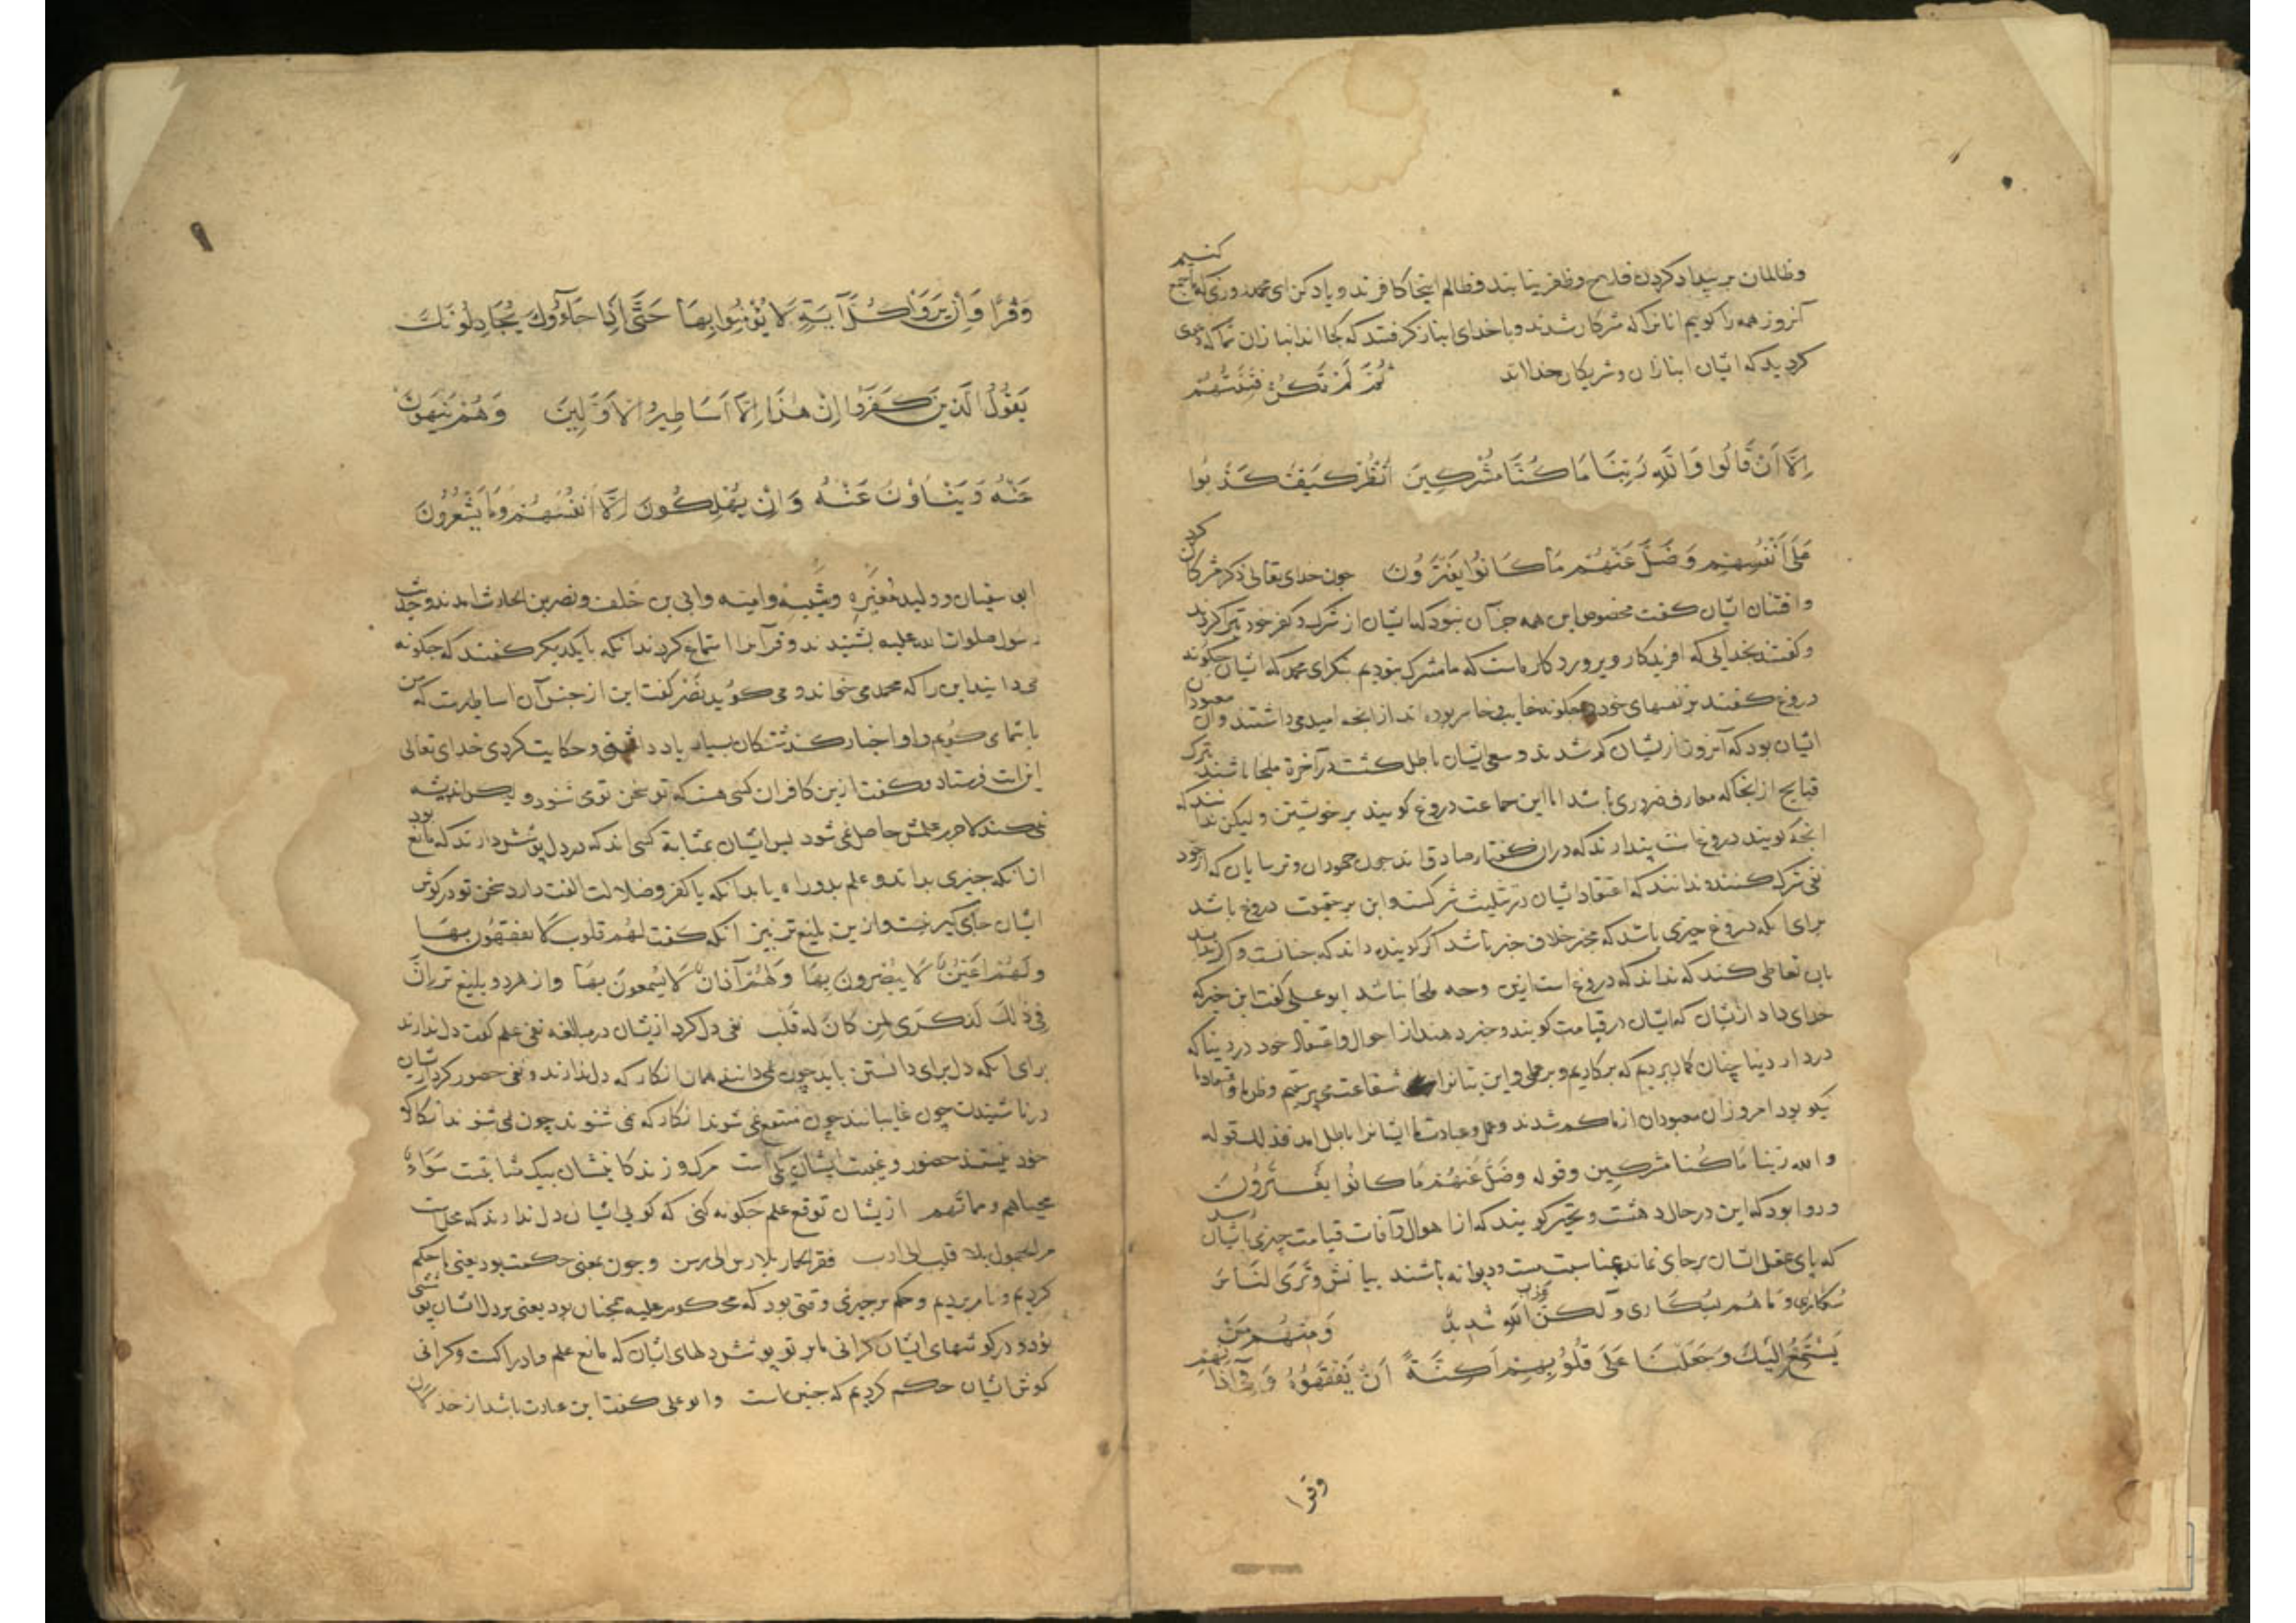 وظالمان بر بیداد کردن فلاح وظفر نیابند وظالم اینجا کافرند و یاد کن ای محمد روزی که ما جمع کنیم
آنروز همه را کوییم انانرا که مشرکان شدند و با خدای انباز کرفتند که کجااند انبازان شما که دعوی
کردید که ایشان انبازان و شریکان خدااند ثُمَّ لَمْ تَكُنْ فِتْنَتُهُمْ
اِلَّا اَنْ قَالُوا وَاللّٰهِ رَبِّنَا مَا كُنَّا مُشْرِكِينَ اُنْظُرْ كَيْفَ كَذَبُوا
عَلَى اَنْفُسِهِمْ وَضَلَّ عَنْهُمْ مَا كَانُوا يَفْتَرُونَ چون خدای تعالی ذکر مشرکان کرد
وافتنان ایشان کفت محصول این همه جز آن نبود که ایشان از شرک و کفر خود تبرا کردند
و کفتند بخدایی که افریدکار و پروردکار ماست که ما مشرک نبودیم بنکر ای محمد که ایشان چکونه
دروغ کفتند بر نفسهای خود و چکونه خایب و خاسر بوده اند از انچه امید می داشتند وآن معبودان
ایشان بود که آنروز ازیشان کم شدند و سعی ایشان باطل کشت در آخرة ملجا باشند بترک
قبایح از انجا که معارف ضروری باشد اما این جماعت دروغ کویند بر خویشتن و لیکن ندانند که
انچه کویند دروغ است پندارند که دران کفتار صادق اند چون جهودان و ترسایان که از خود
نفی شرک کنند و ندانند که اعتقاد ایشان در تثلیث شرکست و این بر حقیقت دروغ باشد
برای انکه دروغ خبری باشد که مخبر خلاف خبر باشد اکر کوینده داند که چنانست و اکر نداند
بان تعاطی کند که نداند که دروغ است ازین وجه ملجا نباشد ابو علی کفت این خبرکه
خدای داد ازیشان که ایشان در قیامت کویند و خبر دهند از احوال و اعتقاد خود در دنیا که
در دار دنیا چنان کمان بردیم که بر کاریم و بر حق و این بتانرا شفاعت می پرستیم وظن ما و اعتقاد ما
نیکو بود امروز ان معبودان از ما کم شدند و عمل و عبادت ما ایشانرا باطل امد فذلک قوله
والله ربنا مَا كُنا مشركين وقوله وضَلَّ عَنهُمْ مَا كانُوا يَفْتَرُونَ
و روا بود که این در حال دهشت و تحیر کویند که از اهوال و آفات قیامت چیزی بایشان رسد
که پای عقل ایشان بر جای نماند بمثابت مست و دیوانه باشند بیانش وَتَرَى النَّاسَ
سُكَارَى وَمَا هُم بِسُكَارَى وَلكنّ عذاب الله شَدِيدٌ وَمِنْهُمْ مَنْ
يَسْتَمِعُ اِلَيْكَ وَجَعَلْنَا عَلَى قُلُوبِهِمْ اَكِنَّةً اَنْ يَفْقَهُوهُ وَفِي آذَانِهِمْ
وقرا
۹
وَقْرًا وَاِنْ يَرَوْا كُلَّ آيَةٍ لَا يُؤْمِنُوا بِهَا حَتَّى اِذَا جَاؤُوكَ يُجَادِلُونَكَ
يَقُولُ الَّذِينَ كَفَرُوا اِنْ هٰذَا اِلَّا اَسَاطِيرُ الاَوَّلِينَ وَهُمْ يَنْهَوْنَ
عَنْهُ وَيَنْاَوْنَ عَنْهُ وَاِنْ يُهْلِكُونَ اِلَّا اَنْفُسَهُمْ وَمَا يَشْعُرُونَ
ابو سفیان و ولید مُغَیره وشَیبه وامیه وابی بن خلف و نضر بن الحارث امدند و حدیث
رسول صلوات الله علیه بشنیدند و قرآنرا استماع کردند انکه با یکدیکر کفتند که چکونه
می دانید این را که محمد می خواند و می کوید نضر کفت این از جنس آن اساطیرست که من
با شما می کویم و او اخبار کذشتکان بسیار یاد داشتی و حکایت کردی خدای تعالی
این آیت فرستاد و کفت ازین کافران کس هست که تو سخن توی شنود و لیکن اندیشه
نمی کند لاجرم علمش حاصل نمی شود پس ایشان بمثابة کسی اند که در دل پوشش دارند که مانع بود
از انکه چیزی بداند و علم بدو راه یابد انکه با کفر و ضلالت الفت دارد سخن تو در کوش
ایشان جای کیر نیست و ازین بلیغ تر نیز انکه کفت لهم قلوب لا يفقهون بها
ولهُمْ اَعْيُنٌ لَا يُبْصِرونَ بِهَا وَلَهُمْ آذانٌ لَا يَسْمعونَ بهَا و از هر دو بلیغ تر اِنَّ
فِي ذلكَ لَذِكْرَى لمن كَانَ له قَلْب نفی دل کرد ازیشان در مبالغه نفی علم کفت دل ندارند
برای انکه دل برای دانستن باید چون نمی دانند همان انکار که دل ندارند و نفی حضور کرد ازیشان
در ناشنیدن چون غایبانند چون منتفع نمی شوند انکار که نمی شنوند چون نمی شنوند انکار که
خود نیستند حضور و غیبت ایشان یکی است مرک و زندکانیشان بیک مثابتست سَوَاءٌ
محياهم ومماتهم ازیشان توقع علم چکونه کنی که کویی ایشان دل ندارند که محل است
کردیم و نام بردیم و حکم بر چیزی وقتی بود که محکوم علیه همچنان بود یعنی بر دل ایشان پوششی
بود و در کوشهای ایشان کرانی ما بر تو پوشش دلهای ایشان که مانع علم و ادراکست و کرانی
کوش ایشان حکم کردیم که چنین است وابو علی کفت این عبارت باشد از خذلان